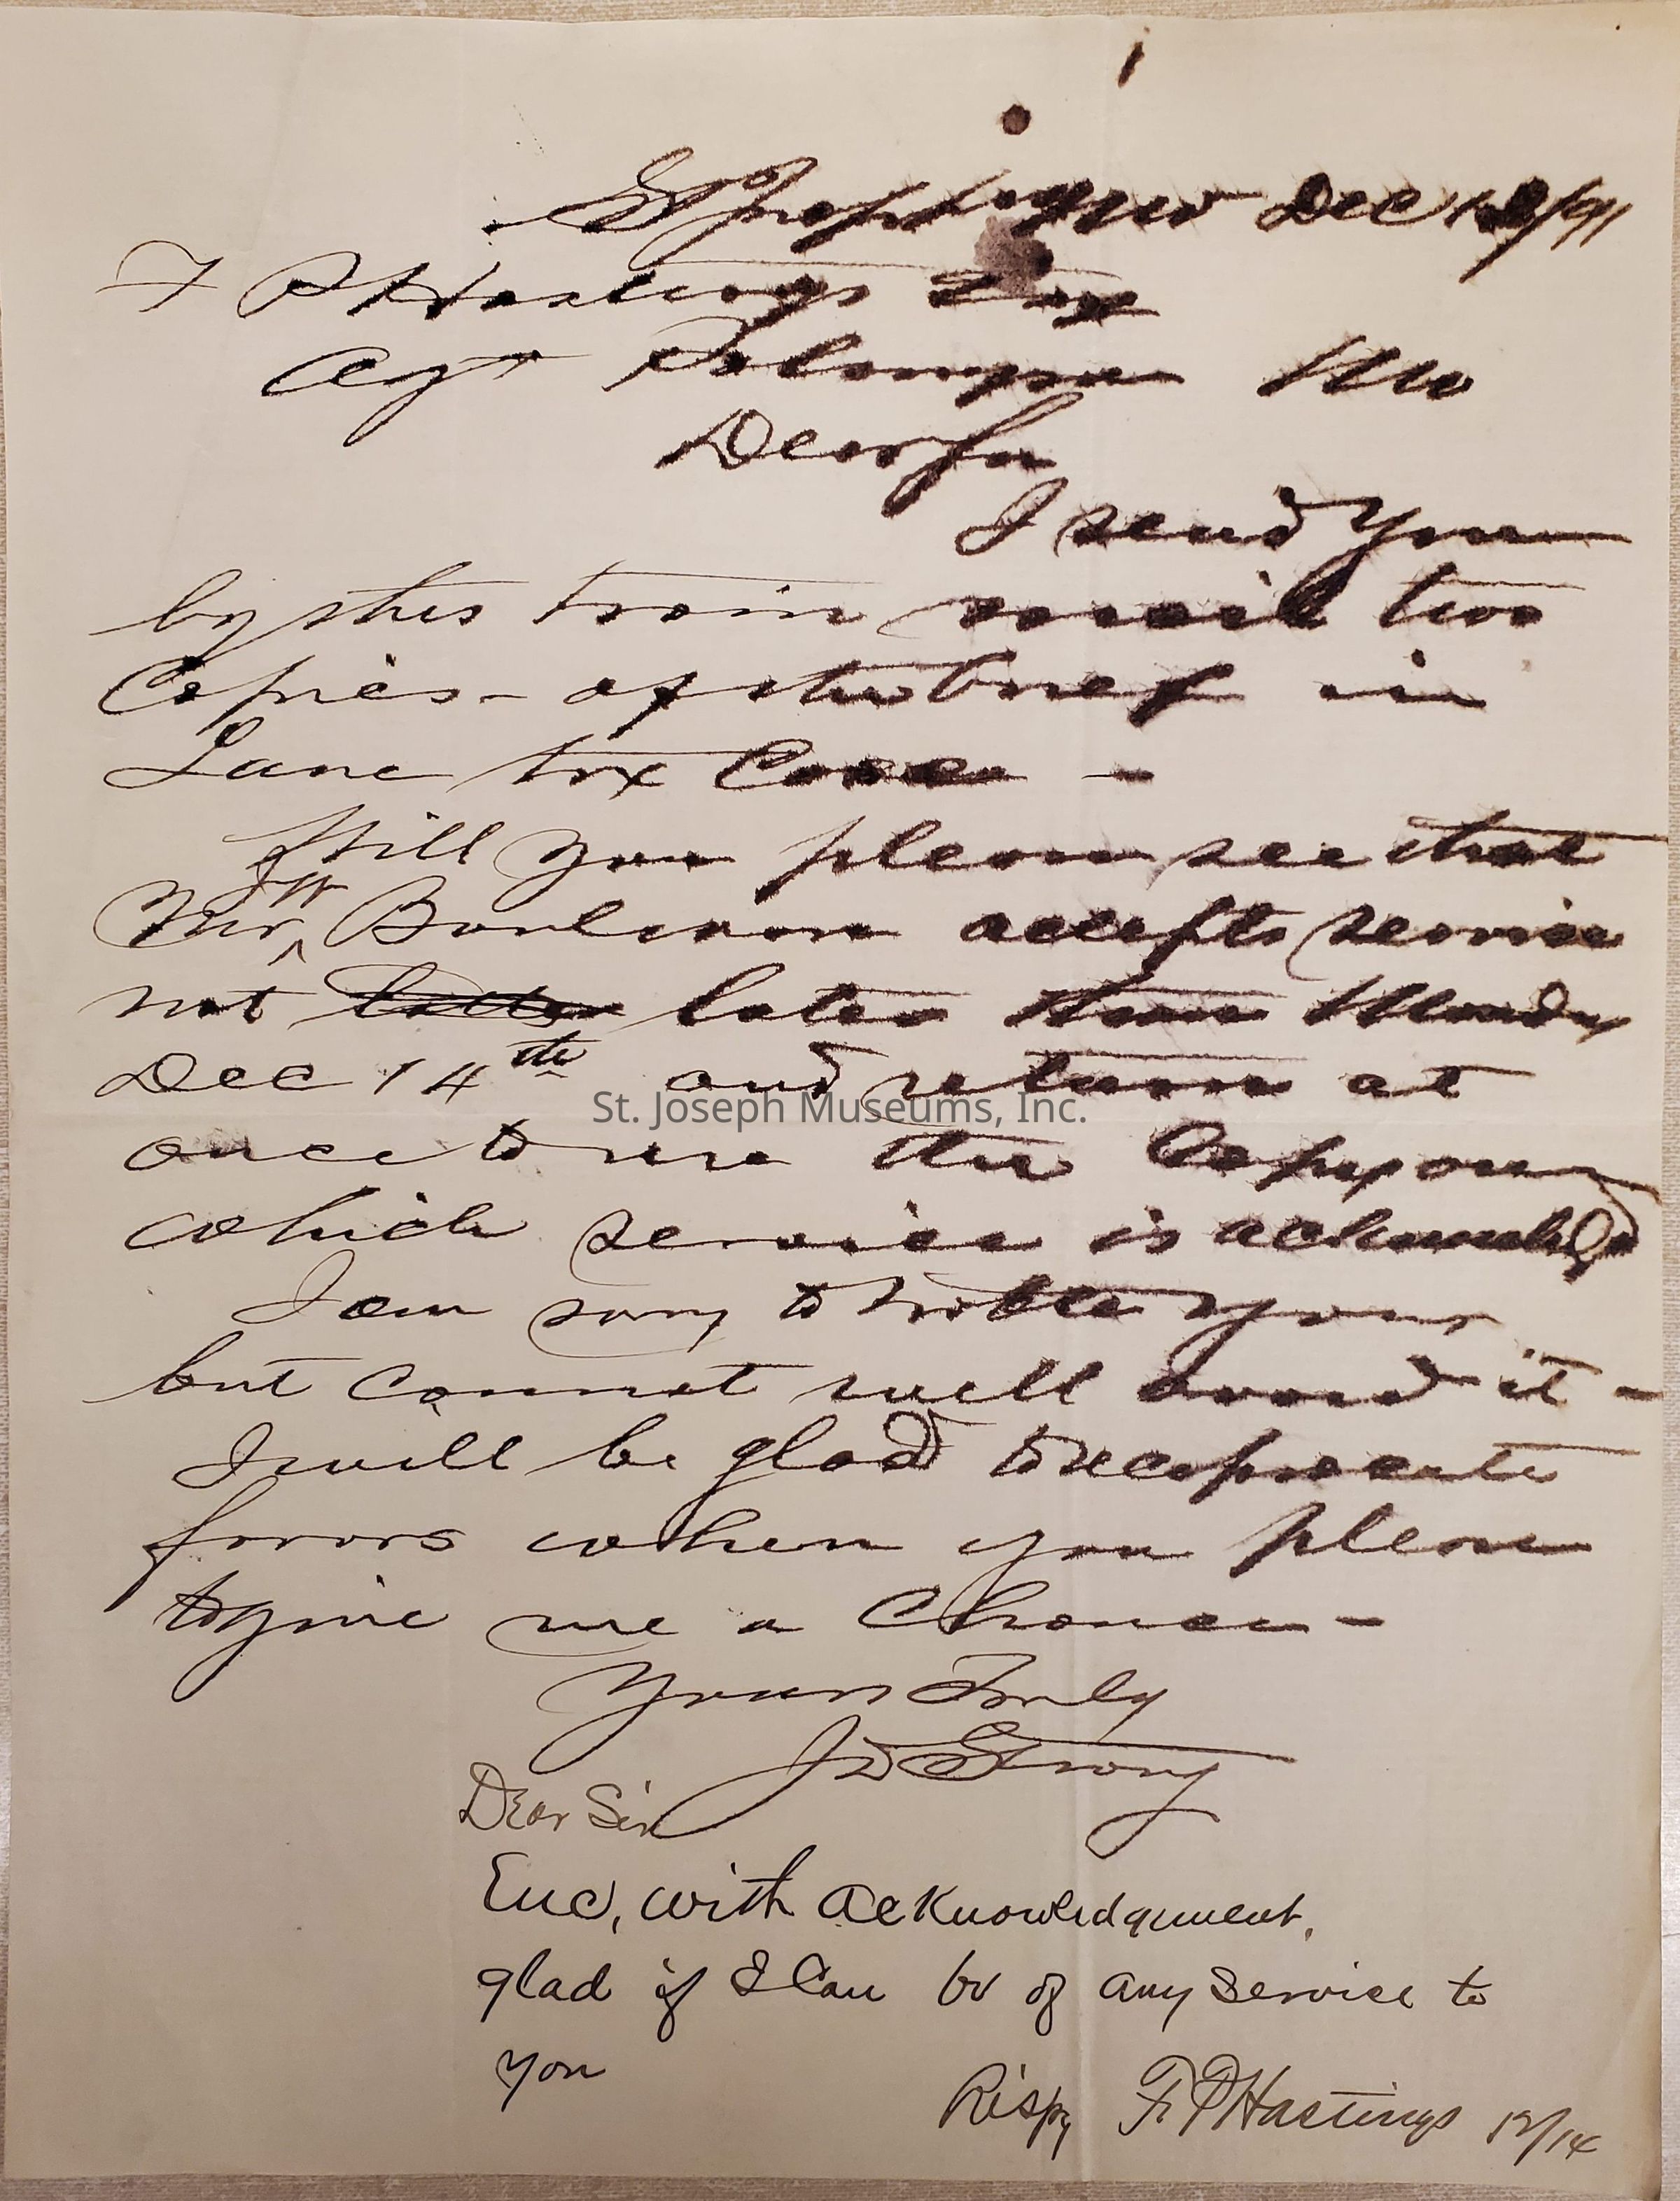 St Joseph Mo Dec 12/91
F P Hastings Esq
Agt Mo
Dear Sir
I send you
by this train mail two
Copies - of the brief in
Lane tax Case -
Will you please see that
Mr accepts service
not later than Monday
Dec 14th and return at
once to me the Copy on
which service is acknowledgd
I am sorry to troble you
but cannot well avoid it -
I will be glad to reciprocate
favors when you please
to give me a Chance -
Yours Truly
J D Strong
Dear Sir
Enc, with acknowledgement.
glad if I Can be of any Service to
you
Respy F. P Hastings 12/14
St. Joseph Museums, Inc.